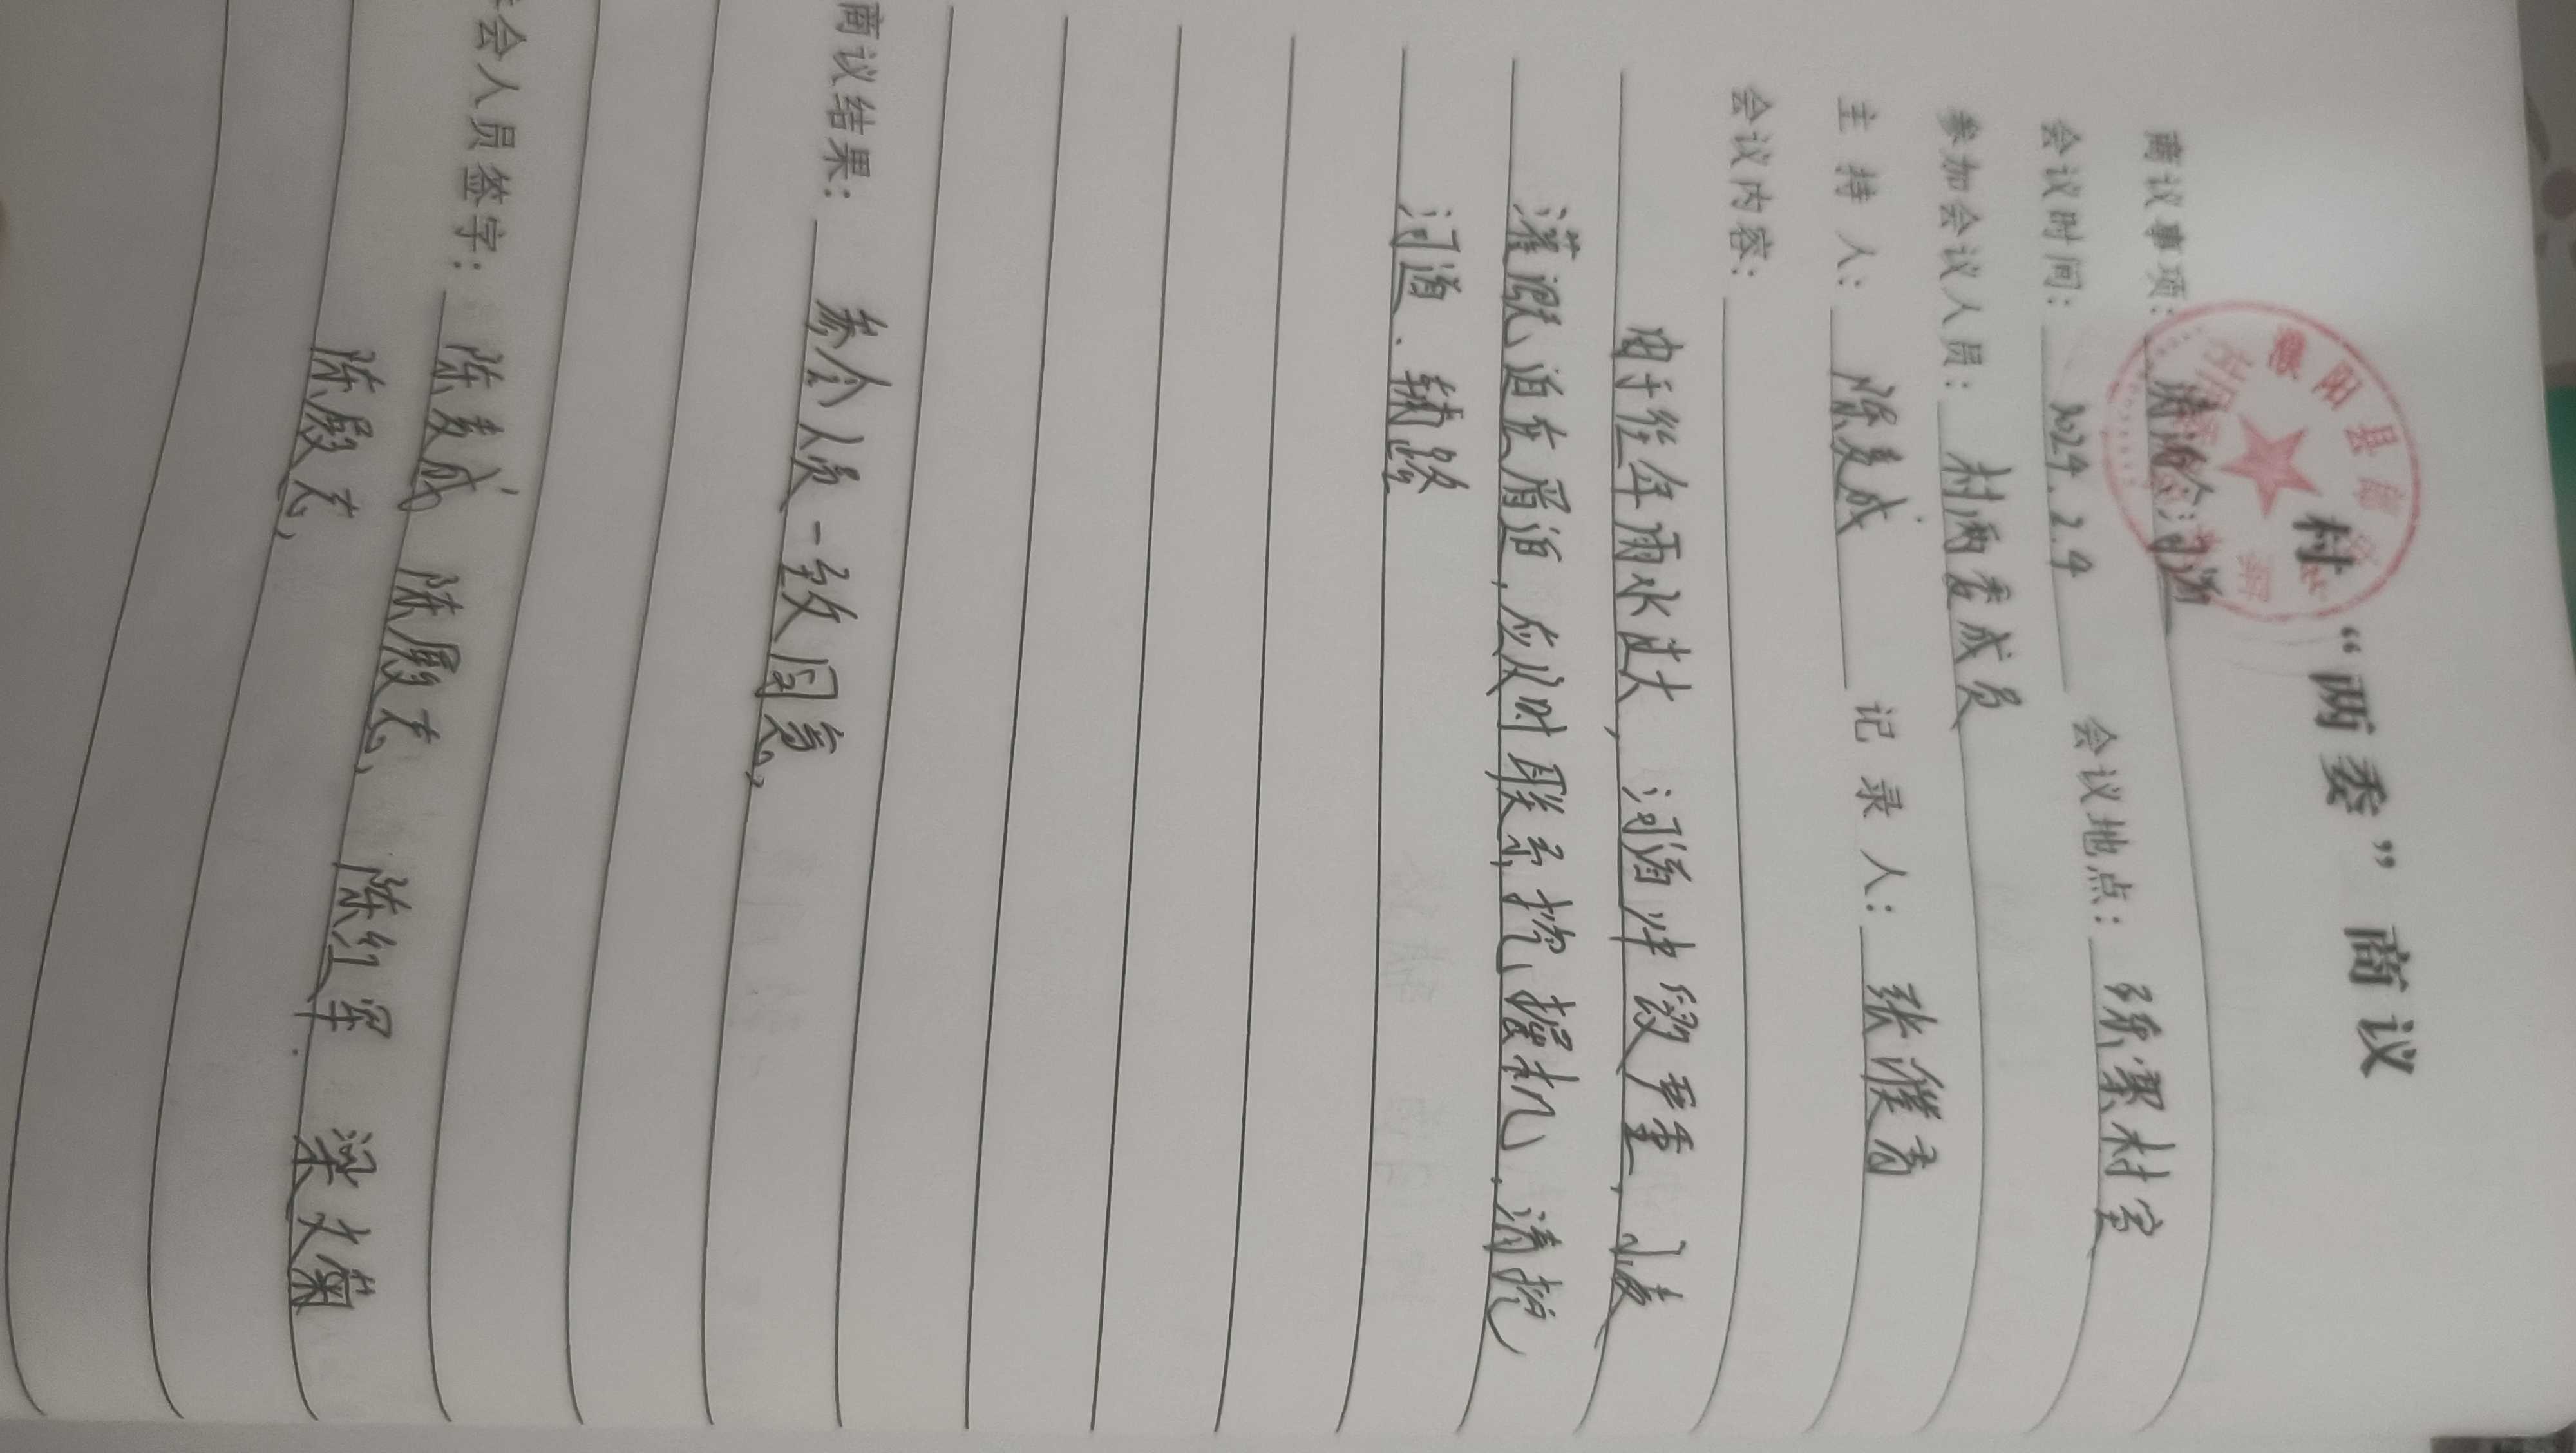 村“两委”商议
濮阳县
商议事项: 清治河道
会议时间: 2024.2.4 会议地点: 陈寨村室
参加会议人员: 村两委成员
主持人: 陈麦成 记录人: 张濮青
会议内容:
由于往年雨水过大, 河道冲毁严重, 小麦
灌溉迫在眉迫, 应及时联系挖掘机, 清挖
河道、辅路
商议结果: 参会人员一致同意,
会人员签字: 陈麦成 陈殿志, 陈红军. 梁文菊
陈殿志,